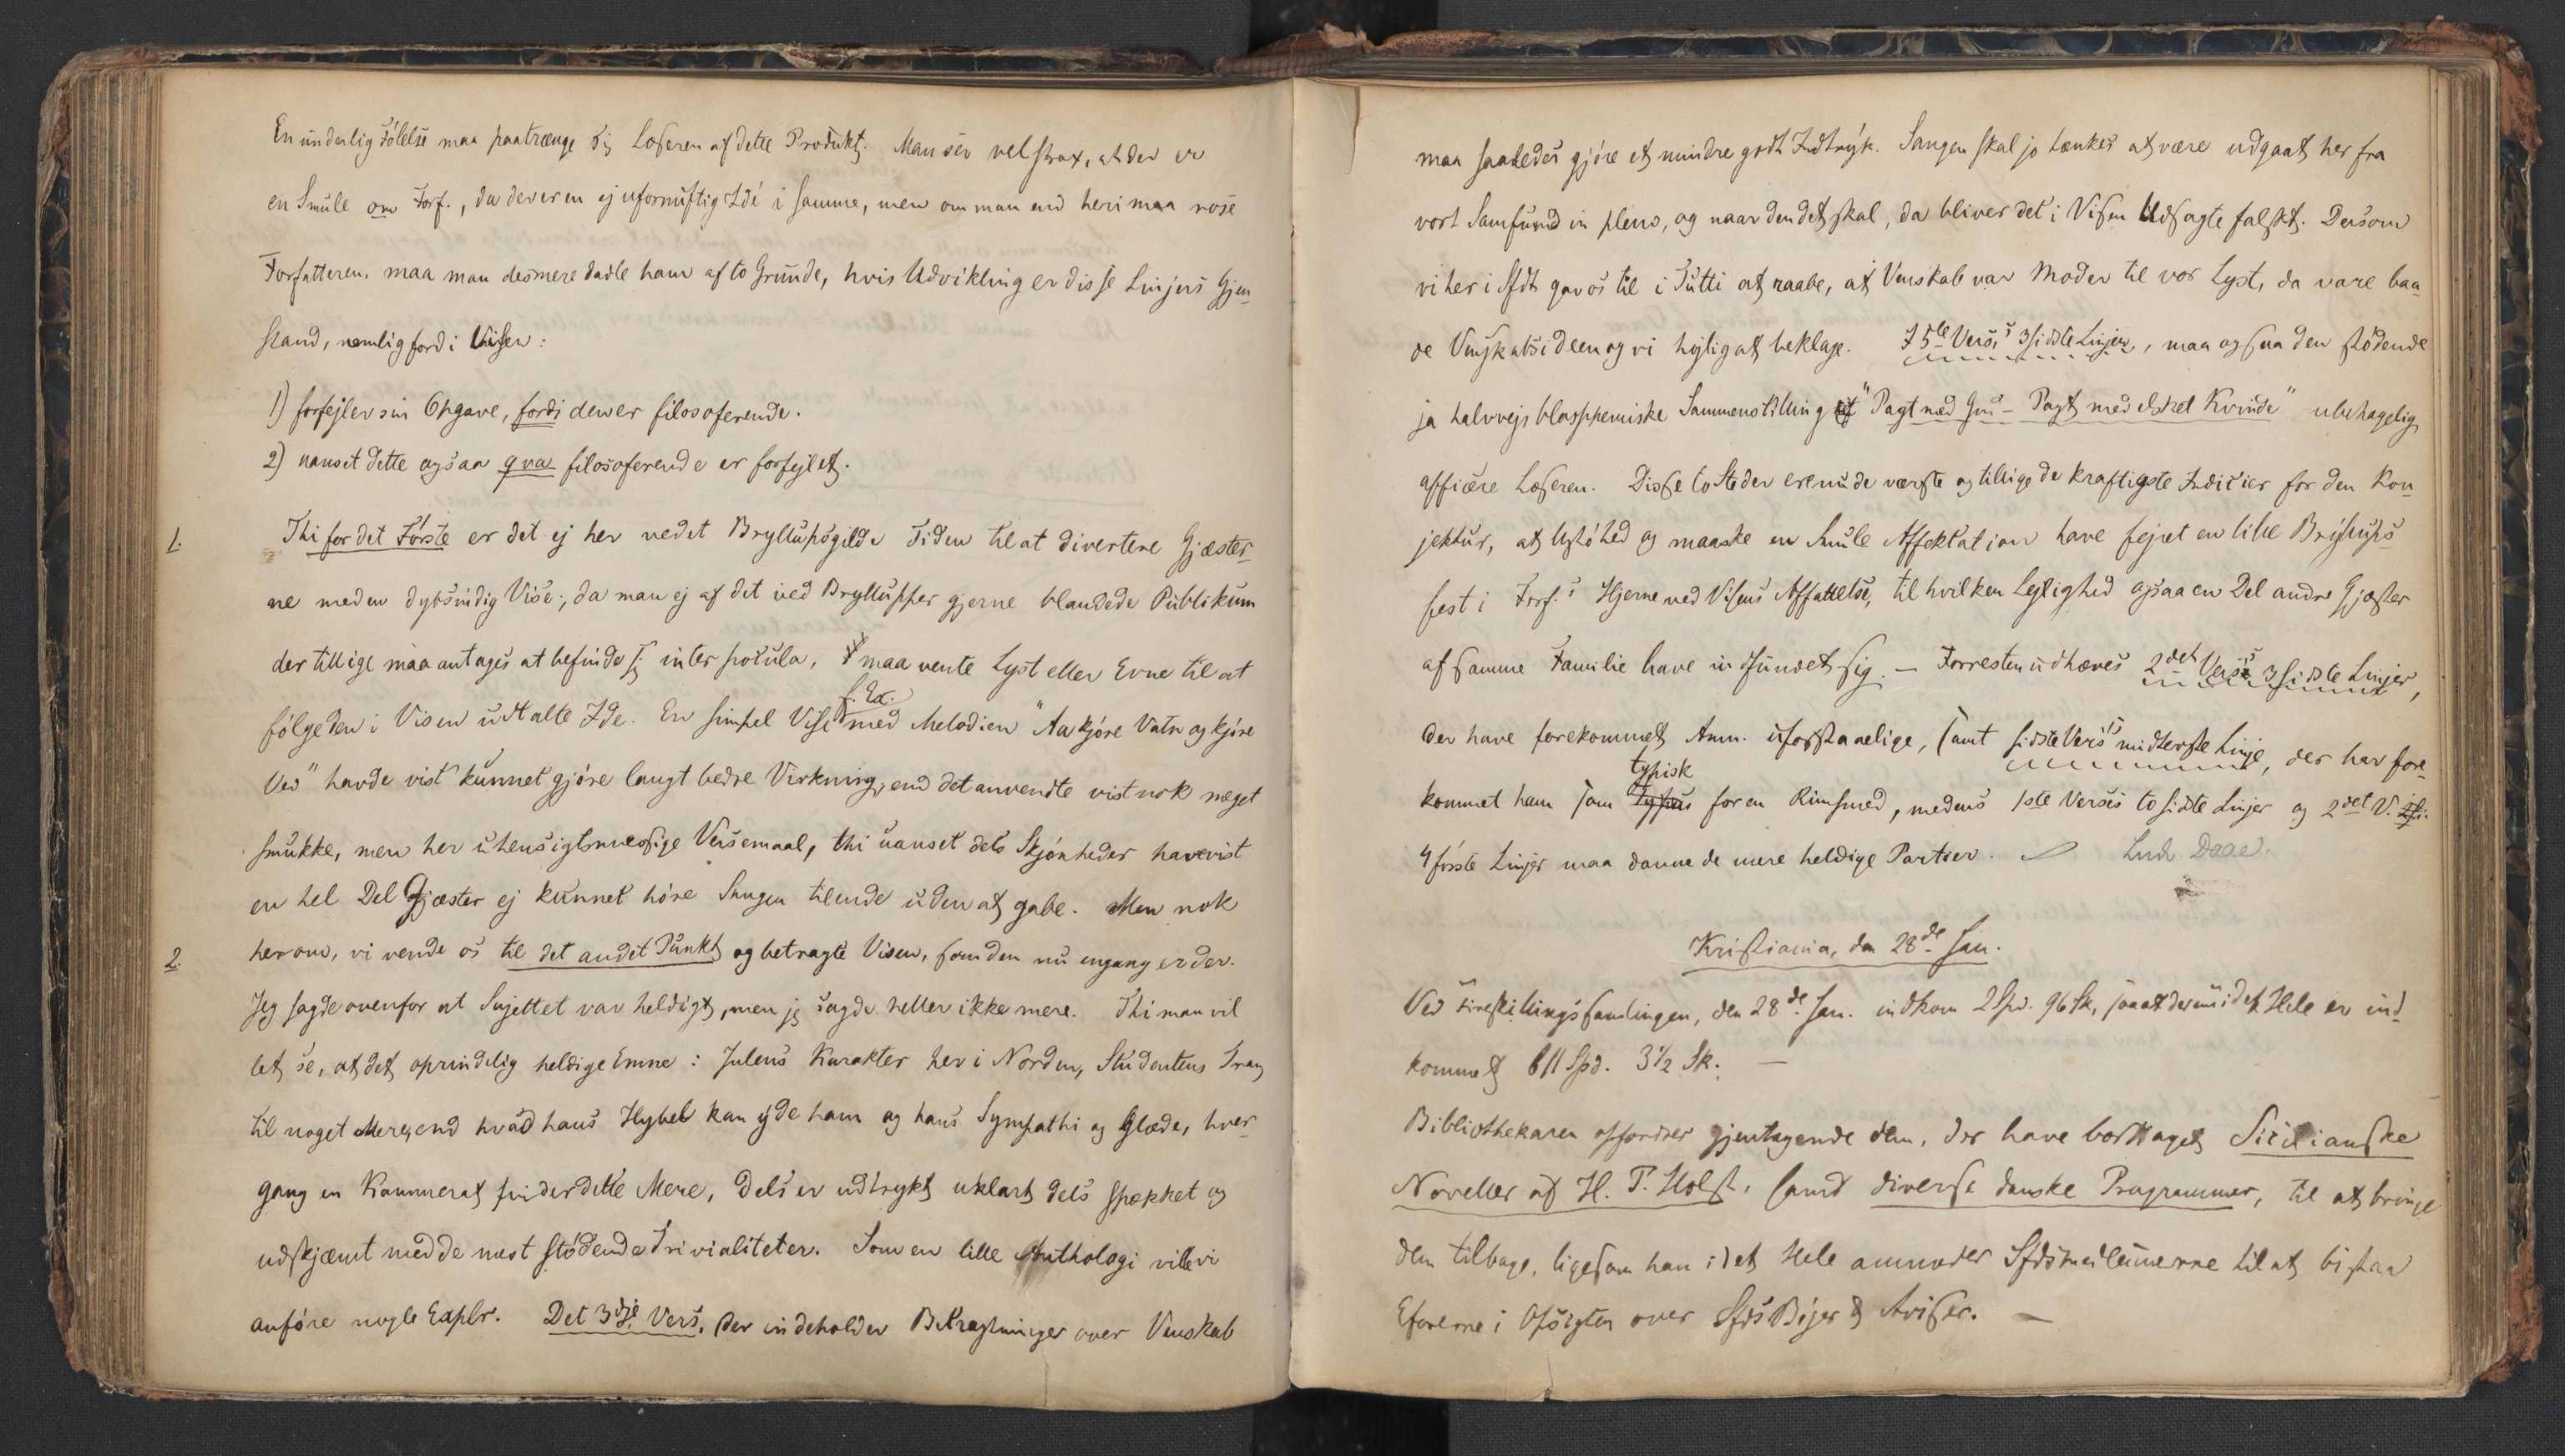 En underlig Følelse maa paatrænge sig Læseren af dette Produkt. Man ser vel strax, at der er
en Smule om Forf., da der er en ej ufornuftig Idé i samme, men om man end heri maa rose
Forfatteren, maa man desmere dadle ham af to Grunde, hvis Udvikling er disse Linjers Gjen-
stand, nemlig fordi Visen:
1) forfejler sin Opgave, fordi den er filosoferende.
2) uanset dette ogsaa qva filosoferende er forfejlet.
1. Thi for det Første er det ej her ved et Bryllupsgilde Tiden til at divertere Gjæster-
ne med en dybsindig Vise, da man ej af det ved Brylluper gjerne blandede Publikum
der tillige maa antages at befinde sig inter pocula, maa vente Lyst eller Evne til at
følge den i Visen udtalte Ide. En simpel Vise f. Ex. med Melodien "Aa kjøre Vatn og kjøre
Ved" havde vist kunnet gjøre langt bedre Virkning, end det anvendte vistnok meget
smukke, men her uhensigtsmæssige Versemaal, thi uanset dets Skjønheder have vist
en hel Del Gjæster ej kunnet høre Sangen tilende uden at gabe. Men nok
2. herom, vi vende os til det andet Punkt og betragte Visen, som den nu engang er der.
Jeg sagde ovenfor at Sujettet var heldigt, men jeg sagde heller ikke mere. Thi man vil
let se, at det oprindelig heldige Emne: Julens Karakter her i Norden, Studentens Trang
til noget Mere, end hvad hans Hybel kan yde ham og hans Sympathi og Glæde, hver-
gang en Kammerat finder dette Mere, dels er udtrykt uklart dels spækket og
udskjæmt med de mest stødende Trivialiteter. Som en lille Anthologi ville vi
anføre nogle Explr. Det 3dje Vers, der indeholder Betragtninger over Venskab
maa saaledes gjøre et mindre godt Indtryk. Sangen skal jo tænkes at være udgaat her fra
vort Samfund in pleno, og naar den det skal, da bliver det i Visen Udsagte falskt. Dersom
vi her i Sfdt gav os til i Tutti at raabe, at Venskab var Moder til vor Lyst, da vare baa-
de Venskabsideen og vi højligt at beklage. I 5te Vers's 3 sidste Linjer, maa ogsaa den stødende
ja halvvejs blasphemiske Sammenstilling af "Pagt med Gud – Pagt med elsket Kvinde" ubehagelig
afficere Læseren. Disse to Steder ere nu de værste og tillige de kraftigste Indicier for den Kon-
jektur, at Usføhed og maaske en Smule Affektation have fejret en lille Bryllups-
fest i Forf.s Hjerne ved Visens Affattelse, til hvilken Lejlighed ogsaa en Del andre Gjæster
af samme Familie have indfundet sig. – Forresten udhæves 2det Vers's 3 sidste Linjer,
der have forekommet Anm. uforstaaelige, samt sidste Vers's midterste Linje, der har fore-
kommet ham som typisk for en Rimsmed, medens 1ste Verses to sidste Linjer og 2det V.
4 første Linjer maa danne de mere heldige Partier. Ludv. Daae.
Kristiania, den 28de Jan.
Ved Fireskillingssamlingen, den 28de Jan. indkom 2 Spd. 96 Sk, saa at der nu i det Hele er ind-
kommet 611 Spd. 3½ Sk. –
Bibliothekaren opfordrer gjentagende dem, der have borttaget Sicilianske
Noveller af H. P. Holst, samt diverse danske Programmer, til at bringe
dem tilbage, ligesom han i det Hele anmoder Sfdsmedlemmerne til at bistaa
Eforerne i Opsigten over Sfds Bøger & Aviser. –